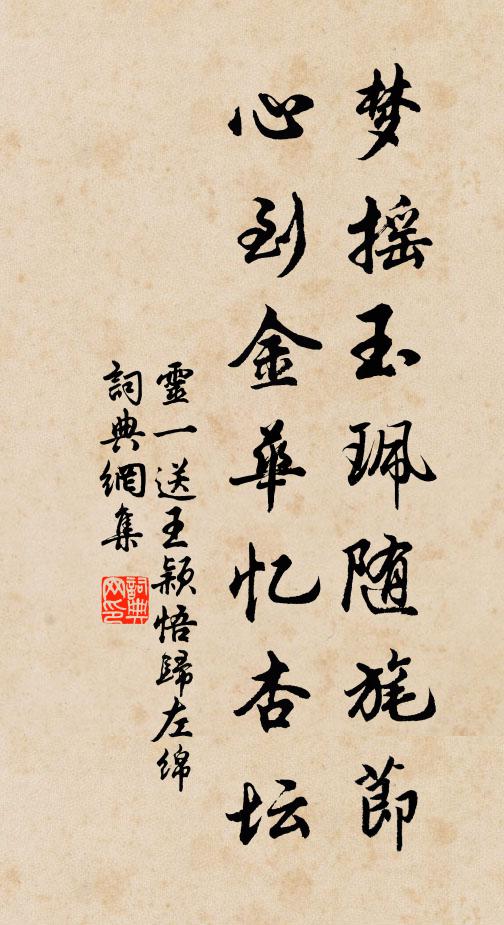 梦摇玉珮随旄節
心到金華忆杏坛
靈一送王颖悟歸左綿
詞典網集
詞典网印